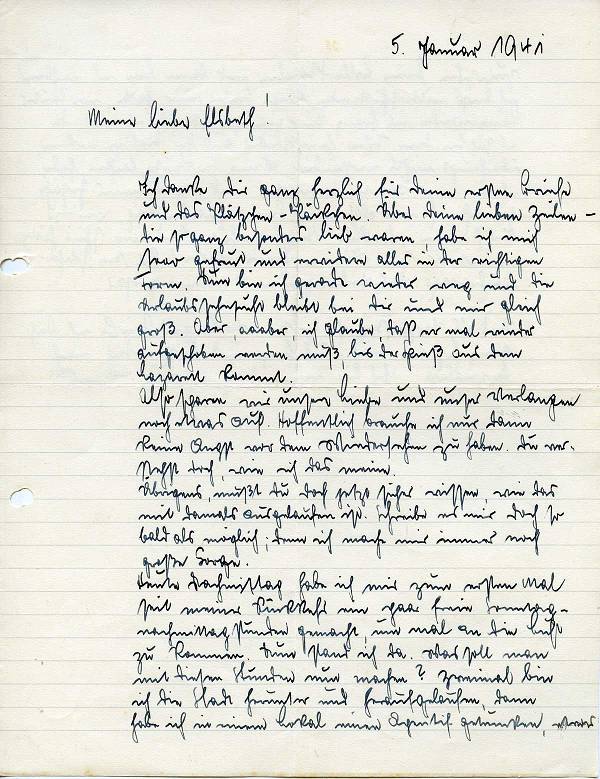 5. Januar 1941
Meine liebe Elsbeth!
Ich danke dir ganz herzlich für deine ersten Briefe
und das Plätzchen-Päckchen. Über deine lieben Zeilen –
die so ganz besonders lieb waren, habe ich mich
sehr gefreut und erwidere alles in der richtigen
Form. Nun bin ich gerade wieder weg und die
Urlaubssehnsucht bleibt bei dir und mir gleich
groß. Aber, aaaber, ich glaube, daß er mal wieder
aufgeschoben werden muß, bis der Spieß aus dem
Lazarett kommt.
Also sparen wir unsere Liebe und unser Verlangen
noch etwas auf. Hoffentlich brauche ich nur dann
keine Angst vor dem Wiedersehen zu haben. Du ver-
stehst doch, wie ich das meine.
Übrigens, mußt du doch jetzt sicher wissen, wie das
mit damals ausgelaufen ist. Schreibe es mir doch so
bald als möglich; denn ich mache mir immer noch
große Sorge.
Heute Nachmittag habe ich mir zum ersten Mal
seit meiner Rückkehr ein paar freie Sonntag-
nachmittagstunden gemacht, um mal an die Luft
zu kommen. Nun stand ich da. Was soll man
mit diesen Stunden nun machen? Zweimal bin
ich die Stadt herunter und heraufgelaufen, dann
habe ich in einem Lokal einen Aperitif getrunken,